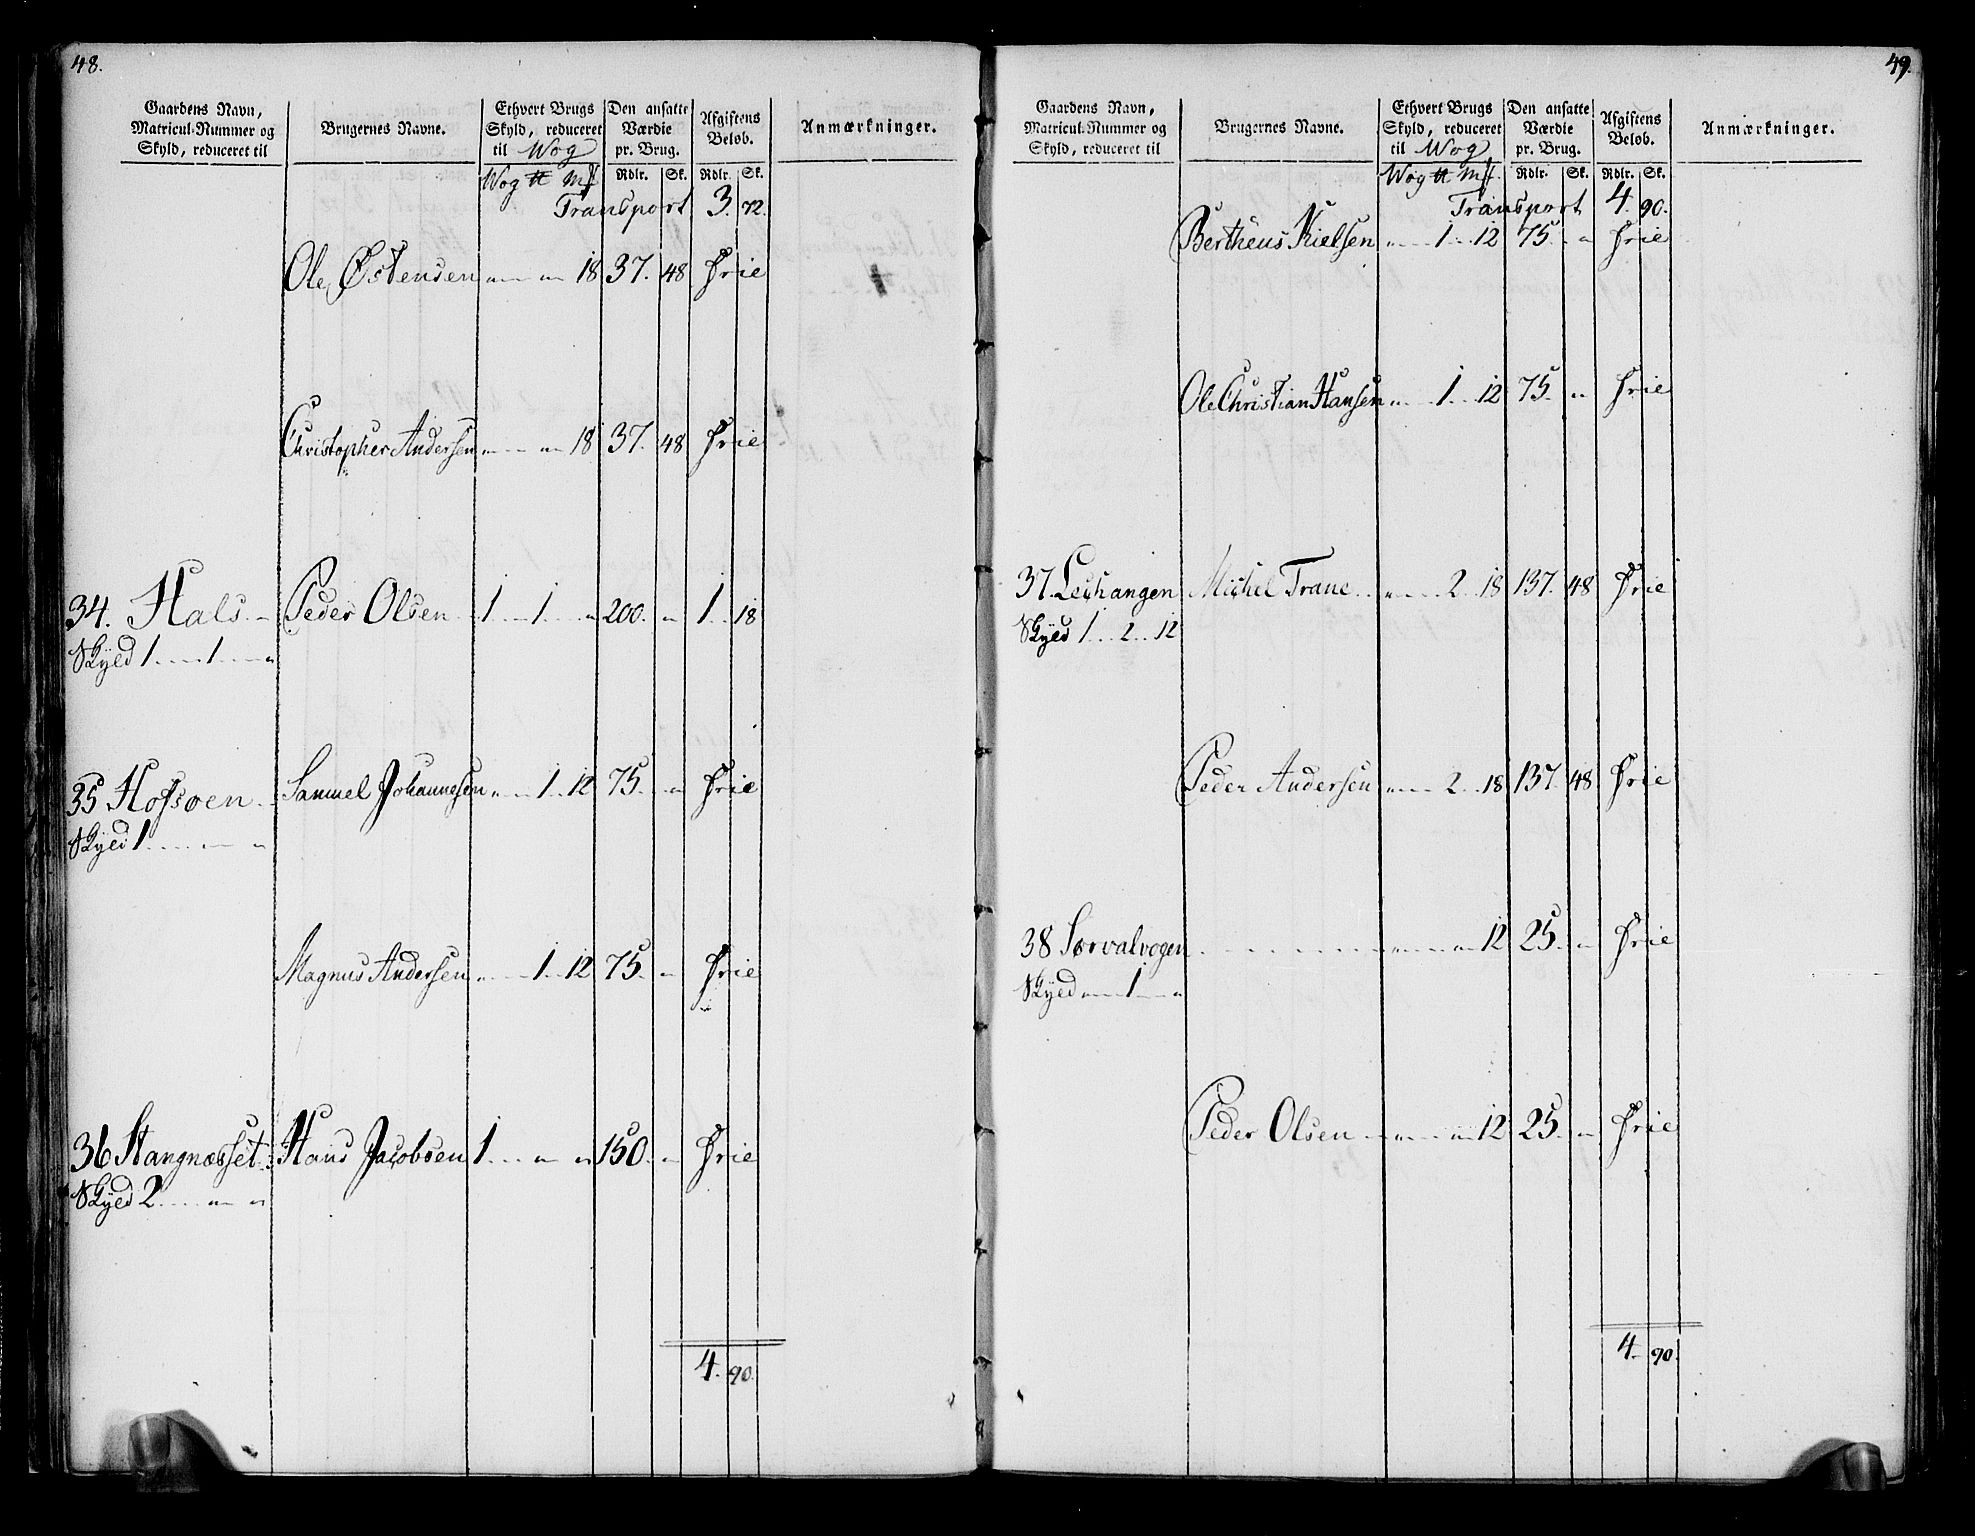 48.
Gaardens Navn, Matricul-Nummer og Skyld, reduceret til | Brugernes Navne. | Ethvert Brugs Skyld, reduceret til Wog | Den ansatte Værdie pr. Brug. | Afgiftens Beløb. | Anmærkninger.
Wog ℔ Mk | Rdlr. | Sk. | Rdlr. | Sk.
Transport 3. 72.
Ole Østensen " " 18 37. 48 Frie
Christopher Andersen " " 18 37. 48 Frie
34. Hals Peder Olsen 1 1 " 200. " 1 18
Skyld 1 1 "
35 Hofsøen Samuel Johannesen " 1 12 75. " Frie
Skyld 1 " "
Magnus Andersen " 1 12 75. " Frie
36 Stangnæsset Hans Jacobsen 1 " " 150. " Frie
Skyld 2 " "
4. 90.
49.
Gaardens Navn, Matricul-Nummer og Skyld, reduceret til | Brugernes Navne. | Ethvert Brugs Skyld, reduceret til Wog | Den ansatte Værdie pr. Brug. | Afgiftens Beløb. | Anmærkninger.
Wog ℔ Mk. | Rdlr. | Sk. | Rdlr. | Sk.
Transport 4. 90.
Bertheus Nielsen " 1 12 75. " Frie
Ole Christian Hansen " 1 12 75. " Frie
37. Leehangen Michel Trane " 2 18 137. 48 Frie
Skyld 1 2 12
Peder Andersen " 2 18 137. 48 Frie
38 Sørvalvogen " " 12 25. " Frie
Skyld " 1 "
Peder Olsen " " 12 25. " Frie
4. 90.